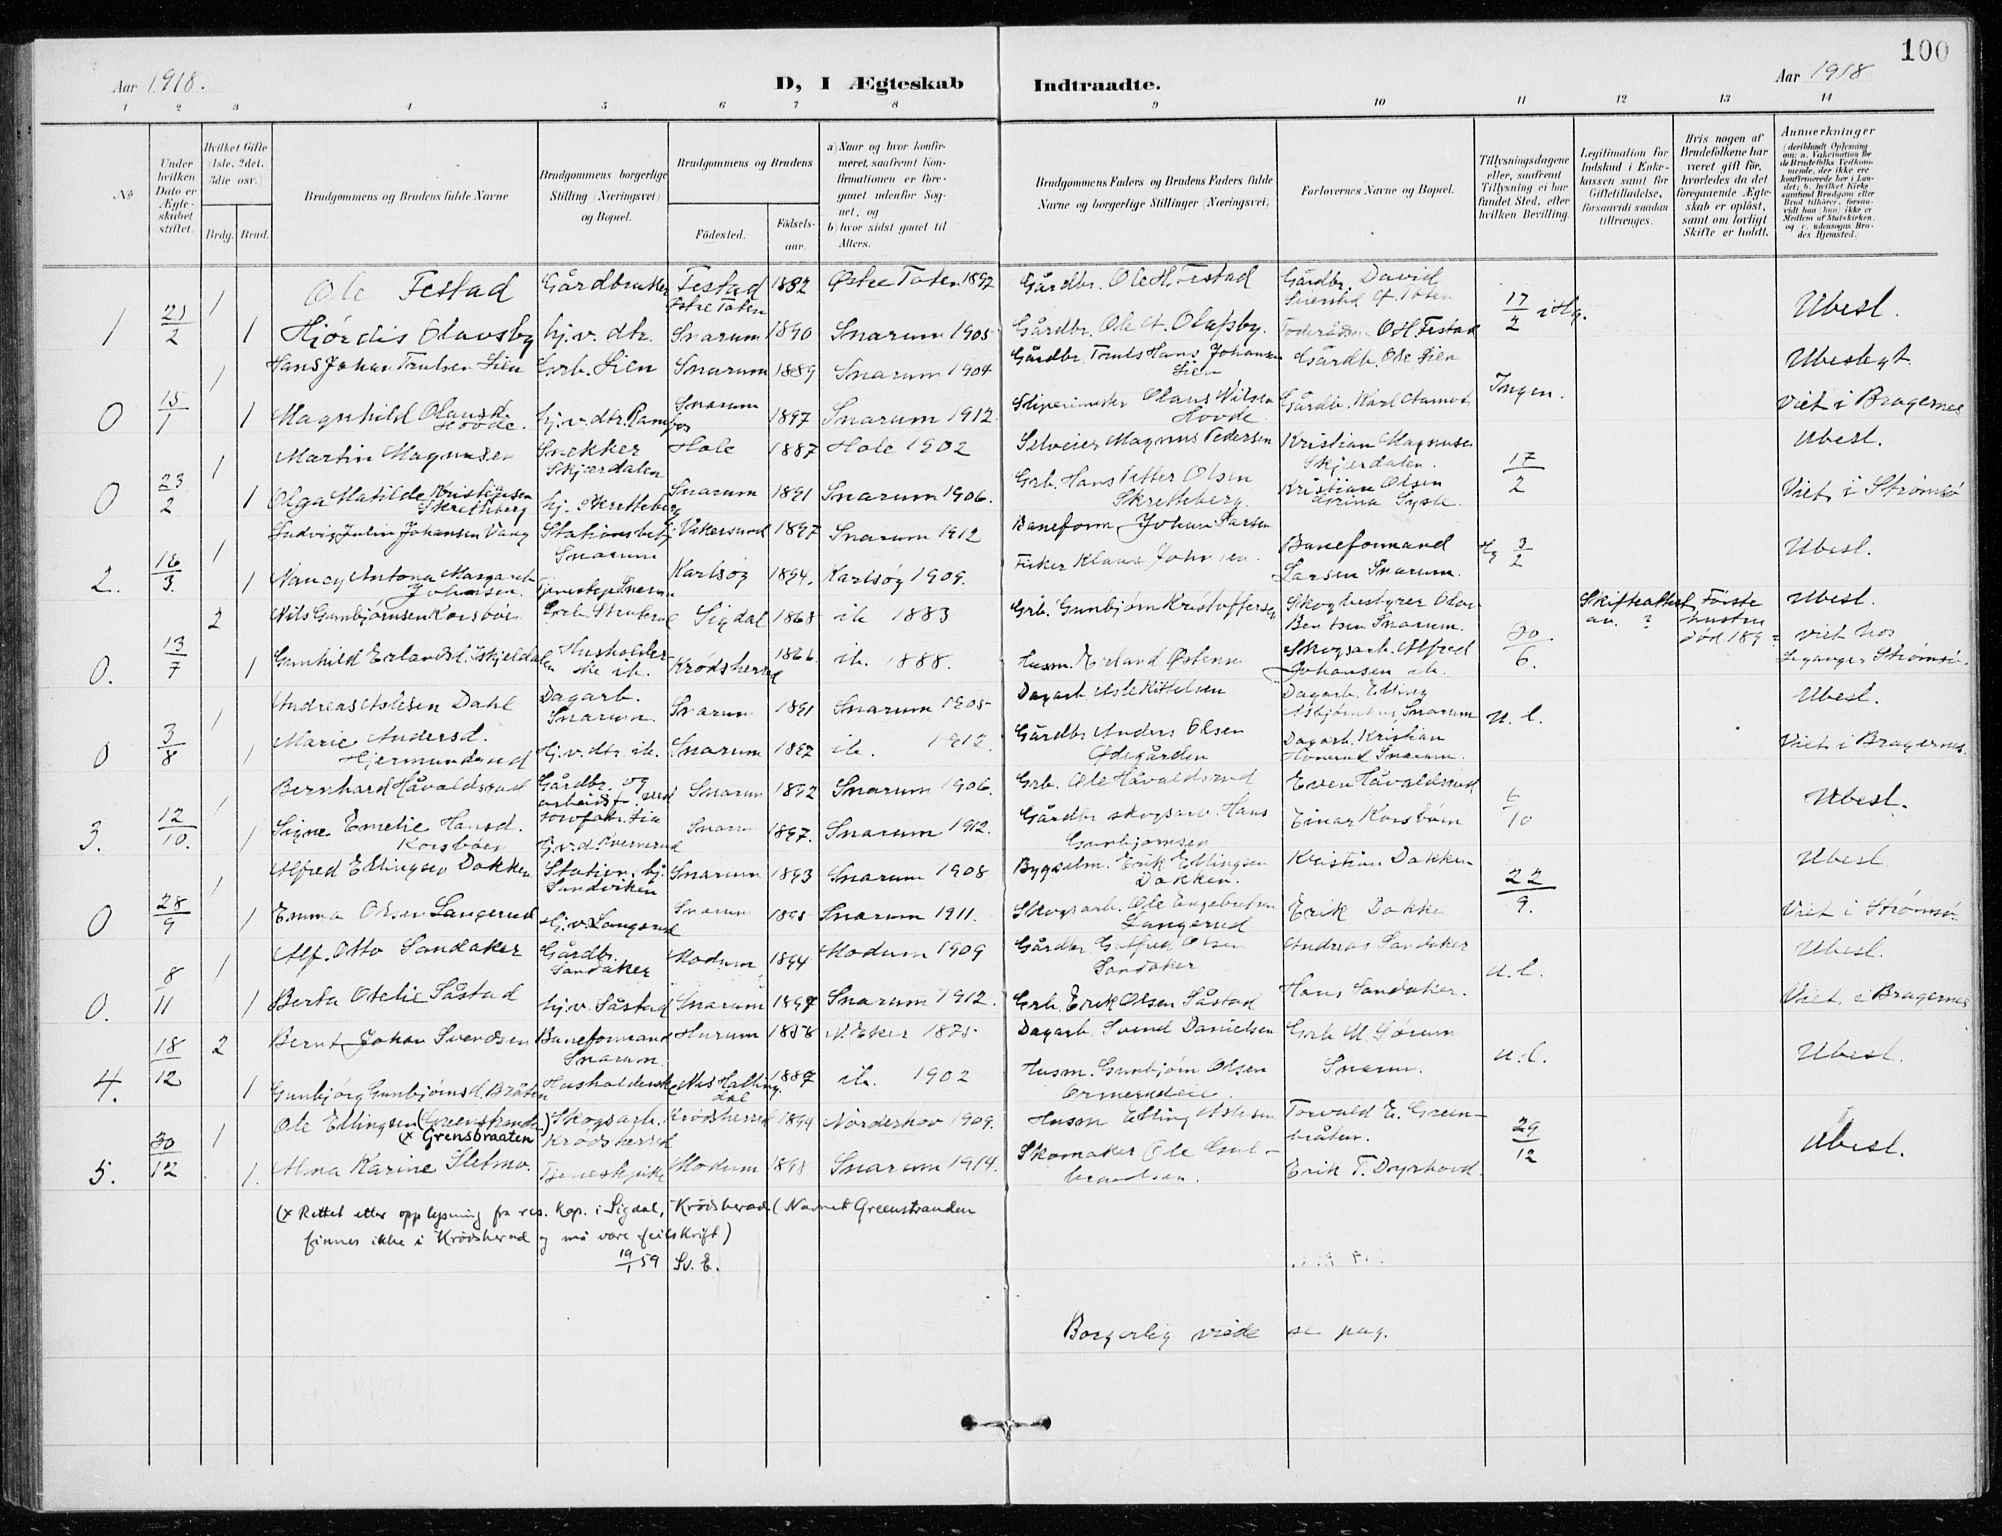 100
Aar 1918.
D, I Ægteskab Indtraadte.
Aar 1918
1 2 3 4 5 6 7 8 9 10 11 12 13 14
No
Under hvilken Dato er Ægteskabet stiftet.
Hvilket Gifte (1ste, 2det, 3die osv.)
Brdg. Brud.
Brudgommens og Brudens fulde Navne
Brudgommens borgerlige Stilling (Næringsvei) og Bopæl.
Brudgommens og Brudens
Fødested. Fødselsaar.
a) Naar og hvor konfirmeret, saafremt Konfirmationen er foregaaet udenfor Sognet, og
b) hvor sidst gaaet til Alters.
Brudgommens Faders og Brudens Faders fulde Navne og borgerlige Stillinger (Næringsvei)
Forlovernes Navne og Bopæl.
Tillysningsdagene eller, saafremt Tillysning ei har fundet Sted, efter hvilken Bevilling.
Legitimation for Indskud i Enkekassen samt for Giftetilladelse, forsaavidt saadan tiltrænges.
Hvis nogen af Brudefolkene har været gift før, hvorledes da det foregaaende Ægteskab er opløst, samt om lovligt Skifte er holdt.
Anmerkninger
(deriblandt Oplysning om: a. Vakcination for de Brudefolks Vedkommende, der ikke ere konfirmerede her i Landet; b. hvilket Kirkesamfund Brudgom eller Brud tilhører, forsaavidt han (hun) ikke er Medlem af Statskirken, og c. udensogns Brudes Hjemsted.)
1 21/2 1 Ole Festad Gårdbruker Festad Østre Toten 1882 Østre Toten 1897 Gårdbr. Ole H. Festad Gårdbr. David Seierstad Ø. Toten 17/2 i Hg. Ubesl.
1 Hjørdis Olavsby hj.v. dtr. Snarum 1890 Snarum 1905 Gårdbr. Ole A. Olafsby. O H. Festad
0 15/1 1 Hans Johan Trulsen Lien Grb. Lien Snarum 1889 Snarum 1904 Gårdbr. Truls Hans Johansen Lien Gårdb. Ole Lien Ingen. Ubeslegt.
1 Magnhild Olausd. Hovde. hj.v. dtr. Ramfos Snarum 1897 Snarum 1912. Sliperimester Olaus Nilsen Hovde Gårdb. Karl Aamot Viet i Bragernes
0 23/2 1 Martin Magnusen Snekker Skjærdalen Hole 1887 Hole 1902 Magnus Pedersen Kristian Magnusen Skjærdalen. 17/2 Ubesl.
1 Olga Matilde Kristiansen Skretteberg hj. Skretteberg Snarum 1891 Snarum 1906. Grb. Hans Petter Olsen Skretteberg. Kristian Olsen Viet i Strømsø
2. 16/3. 1 Ludvig Julin Johansen Vang Stationsbetj. Snarum Vikersund 1897 Snarum 1912 Baneform. Johan Larsen Baneformand Larsen Snarum. Hg 3/2 Ubesl.
1 Nancy Antona Margaret Johnsen. Karlsøy 1894. Karlsøy 1909. Fisker Klaus Johnsen.
0. 13/7 2 Nils Gunbjørnsen Korsbøen Sigdal 1868 ib 1883 Grb. Gunbjørn Kristoffersen Skogbestyrer Olav Bentsen Snarum. 30/6. Skifteattest av. ? Første hustru død 189? Ubesl.
1 Gunhild Erlandsd. Husholderske ib. Krødsherred 1866. ib. 1888. Husm. Erland Østensen Skogsarb. Alfred Johansen ib. viet hos Strømsø.
0 3/8 1 Andreas Aslesen Dahl Dagarb. Snarum. Snarum 1891 Snarum 1905 Dagarb Asle Kittelsen Dagarb. Elling Snarum u. l. Ubesl.
1 Marie Andersd. Hjermundrud Hj.v. dtr. ib. Snarum 1897 ib. 1912. Gårdbr Anders Olsen Ødegården Dagarb. Kristian Snarum. Viet i Bragernes.
3. 12/10. 1 Bernhard Håvaldsrud Gårdbr. og arbeidsf. ved Snarum 1892 Snarum 1906. Grb. Ole Håvaldsrud Even Håvaldsrud 6/10 Ubesl.
1 Signe Emelie Hansd. Korsbøen Snarum 1897. Snarum 1912. Gårdbr skogsarb. Hans Gunbjørnsen Einar Korsbøen
0 28/9 1 Alfred Ellingsen Dokken Station. bj. Sandviken Snarum 1893 Snarum 1908 Bygselm. Erik Ellingsen Dokken. Kristian Dokken 22/9. Ubesl.
1 Emma Olsen Langerud Hj.v. Langerud Snarum 1895 Snarum 1911. Skogsarb. Ole Engebretsen Langerud Erik Dokken Viet i Strømsø
0. 8/11 1 Alf. Otto Sandaker Gårdbr. Sandaker Modum. 1894 Modum 1909 Gårdbr Olsen Sandaker Andreas Sandaker u. l. Ubesl.
1 Berta Otelie Såstad hj.v. Såstad Snarum 1897 Snarum 1912. Grb. Erik Olsen Såstad Hans Sandaker. Viet i Bragernes
4. 18/12 2 Bernt Johan Svendsen Baneformand Snarum. Hurum 1858 N. Eker 1875 Dagarb. Svend Danielsen Grb M Sørum Snarum. u. l. Ubesl.
1 Gunbjørg Gunbjørnsd. Bråten Husholdersk Nes Hallingdal 1887 ib. 1902 Husm. Gunbjørn Olsen
5. 30/12 1 Ole Ellingsen (Greenstranden) (x Grensbraaten Skogsarb. Krødsherred Krødsherred 1894 Norderhov 1909. Husm Elling Aslesen Torvald E. Greenbråten. 29/12 Ubesl.
1. Alma Karine Sletmo. Tjenestepike Modum 1898 Snarum 1914. Skomaker Ole Gulbrandsen. Erik T. Dyrhovd.
(x Rettet etter opplysning fra res. kap. i Sigdal, Krødsherad (Navnet Greenstranden
finnes ikke i Krødsherad og må være feilskrift)
19/1 59 Sv. E.
Borgerlig viede se pag.